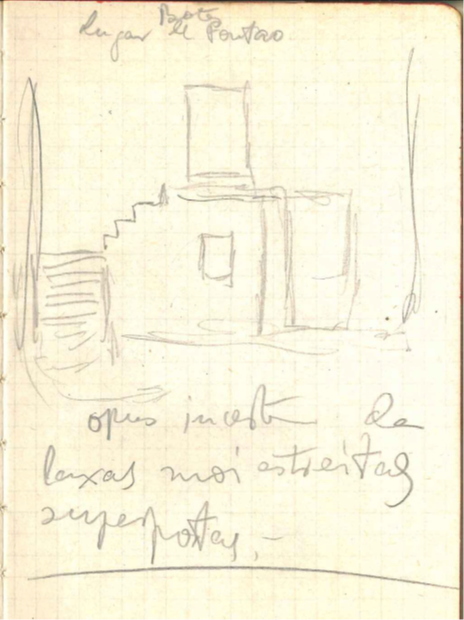 Lugar de Pontao
opus incert de
laxas moi estreitas
superpostas.-